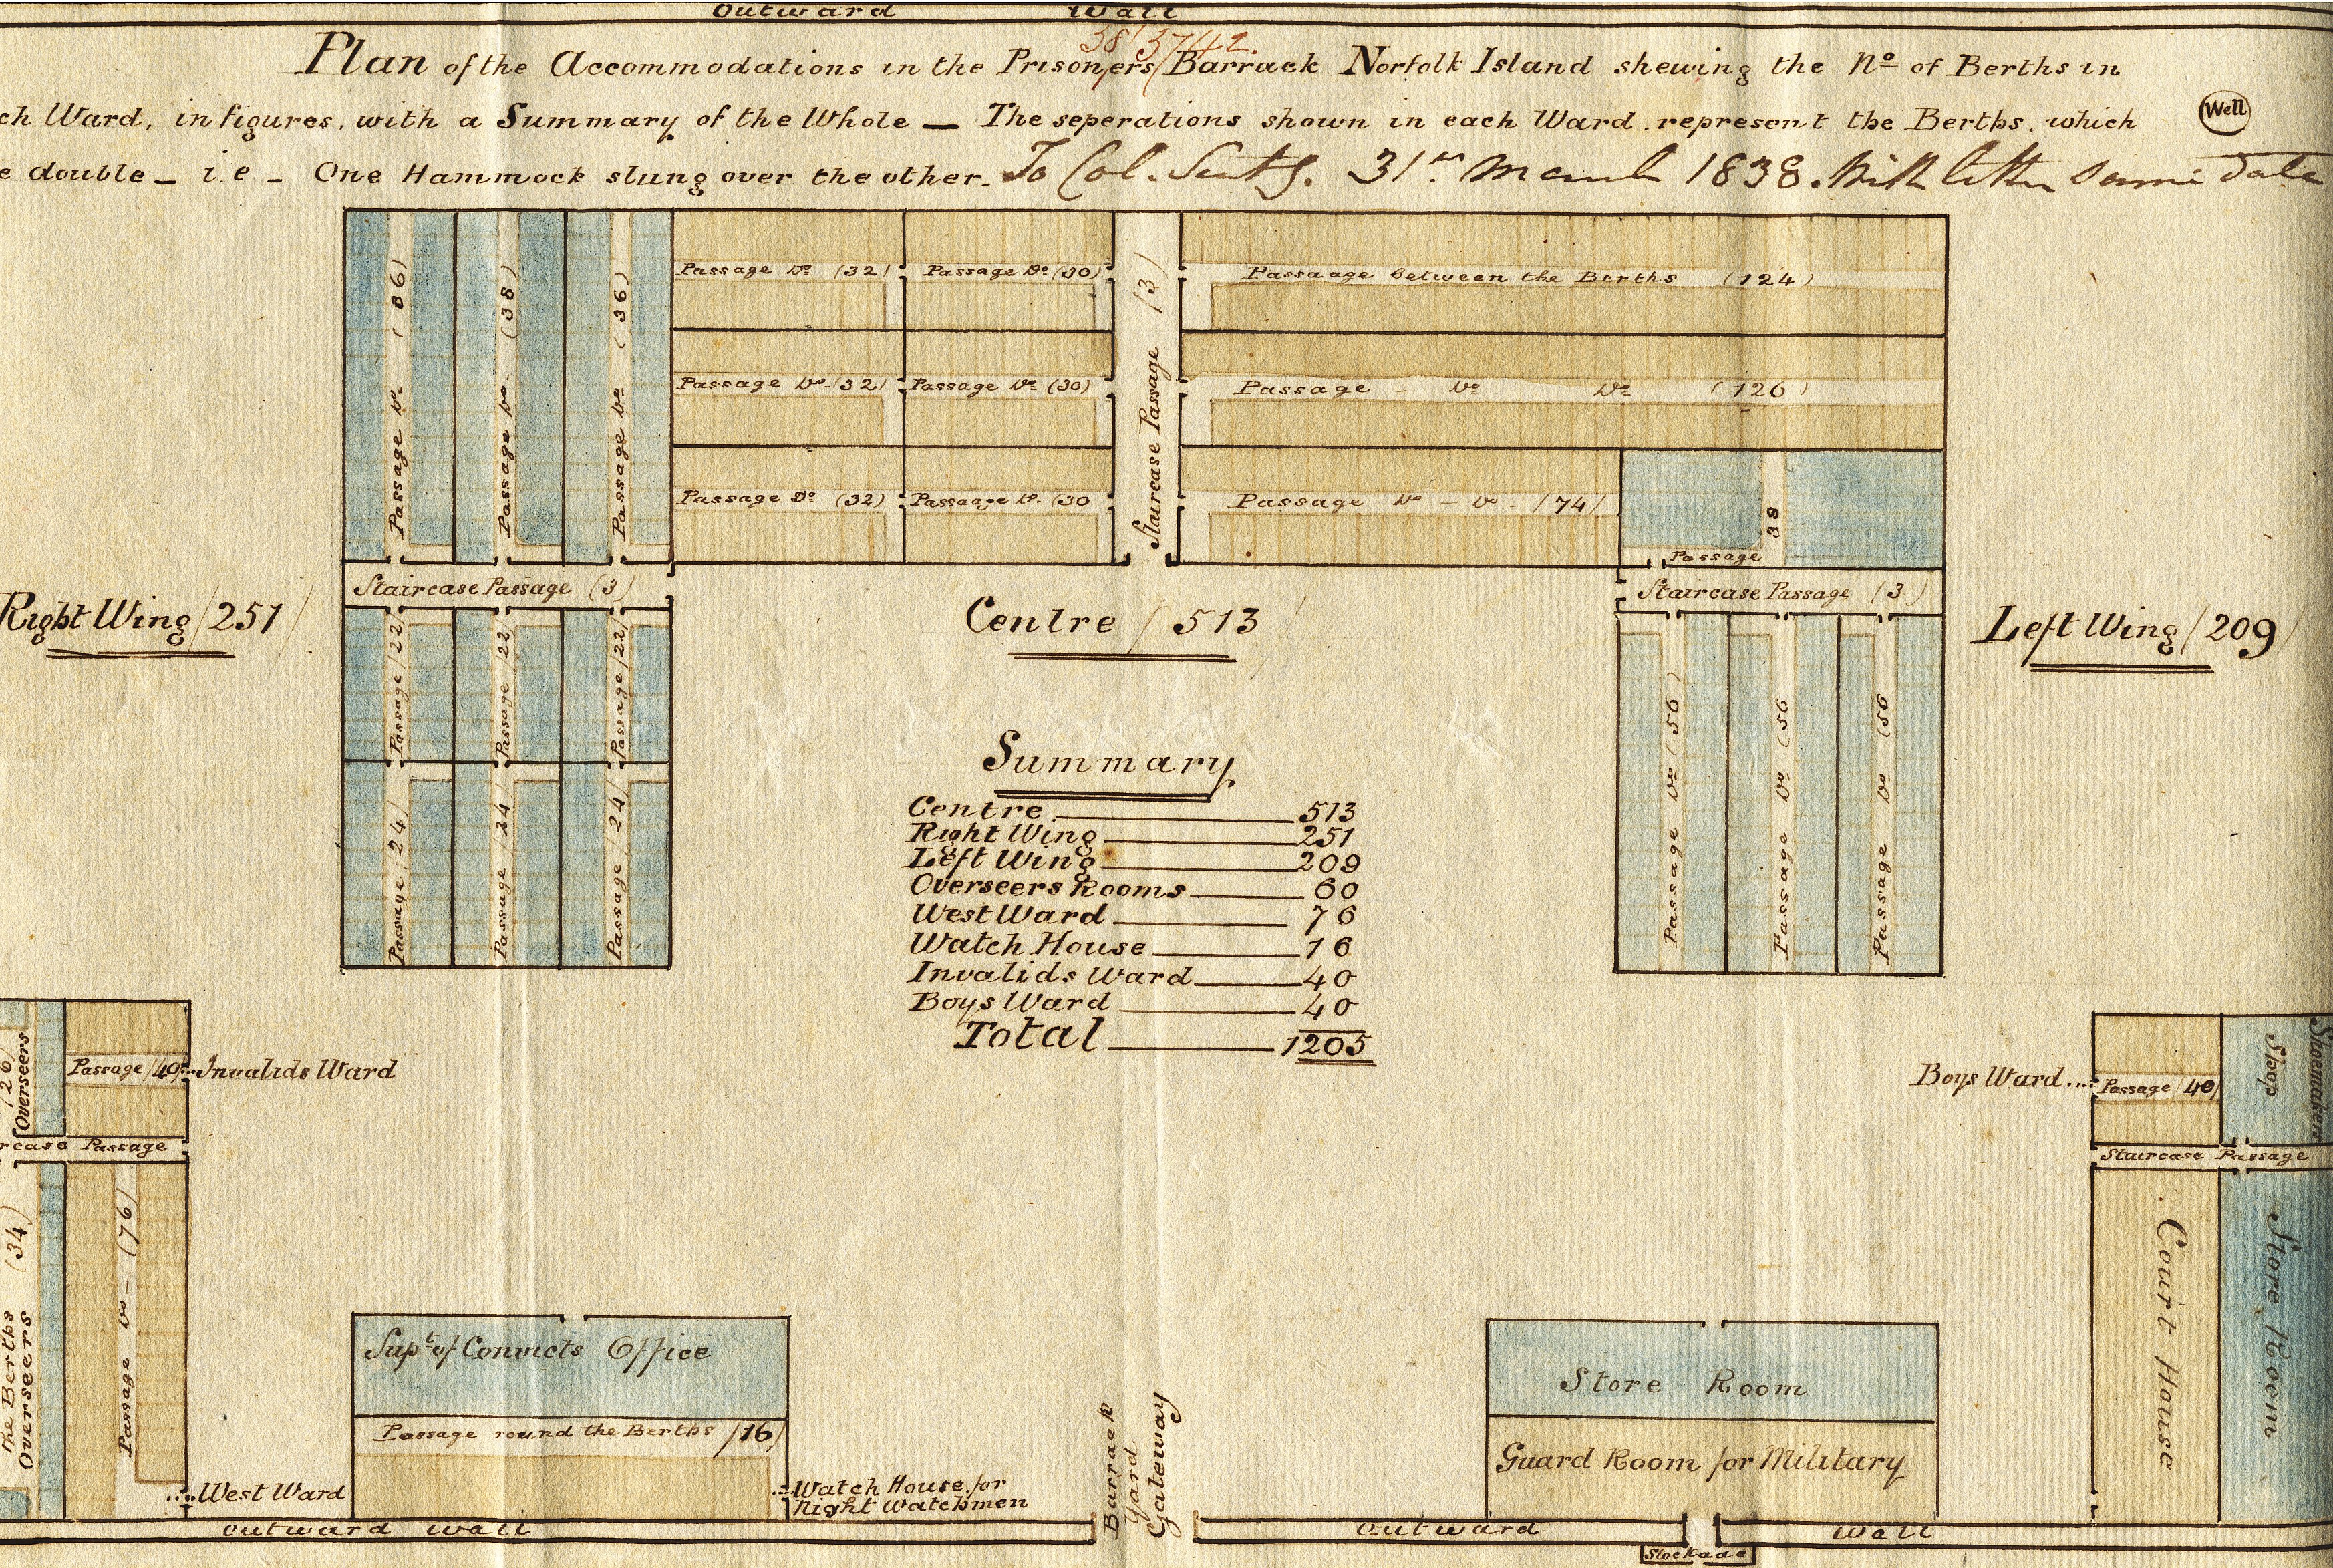 Outward Wall
38/3742.
Plan of the Accommodations in the Prisoners Barrack Norfolk Island shewing the No of Berths in
ch Ward, in figures, with a Summary of the Whole — The seperations shown in each Ward, represent the Berths, which
e double — i.e — One Hammock slung over the other.
To Col. 31st March 1838. With letter same date
Well
Passage Do (86)
Passage Do (38)
Passage Do (36)
Passage Do (32)
Passage Do (30)
Passaage between the Berths (124)
Passage Do (32)
Passage Do (30)
Passage - Do Do (126)
Passage Do (32)
Passaage Do. (30
Passage Do - Do - (74)
Staircase Passage (3)
38
Passage
Staircase Passage (3)
Staircase Passage (3)
Right Wing (251)
Centre (513)
Left Wing (209)
Passage (22)
Passage (22
Passage (22)
Passage (24)
Passage (24)
Passage (24)
Passage Do (56)
Passage Do (56
Passage Do (56
Summary
Centre 513
Right Wing 251
Left Wing 209
Overseers Rooms 60
West Ward 76
Watch House 16
Invalids Ward 40
Boys Ward 40
Total 1205
(26)
Overseers
Passage (40)
Invalids Ward
rcase Passage
(34)
the Berths
Overseers
Passage Do - (76)
West Ward
Boys Ward
Passage (40)
Shoemakers
Shop
Staircase Passage
Court House
Store Room
Supt of Convicts Office
Passage round the Berths (16)
Watch House for
Night Watchmen
Barrack
Yard
Gateway
Store Room
Guard Room for Military
Outward Wall
Outward Wall
Stockade